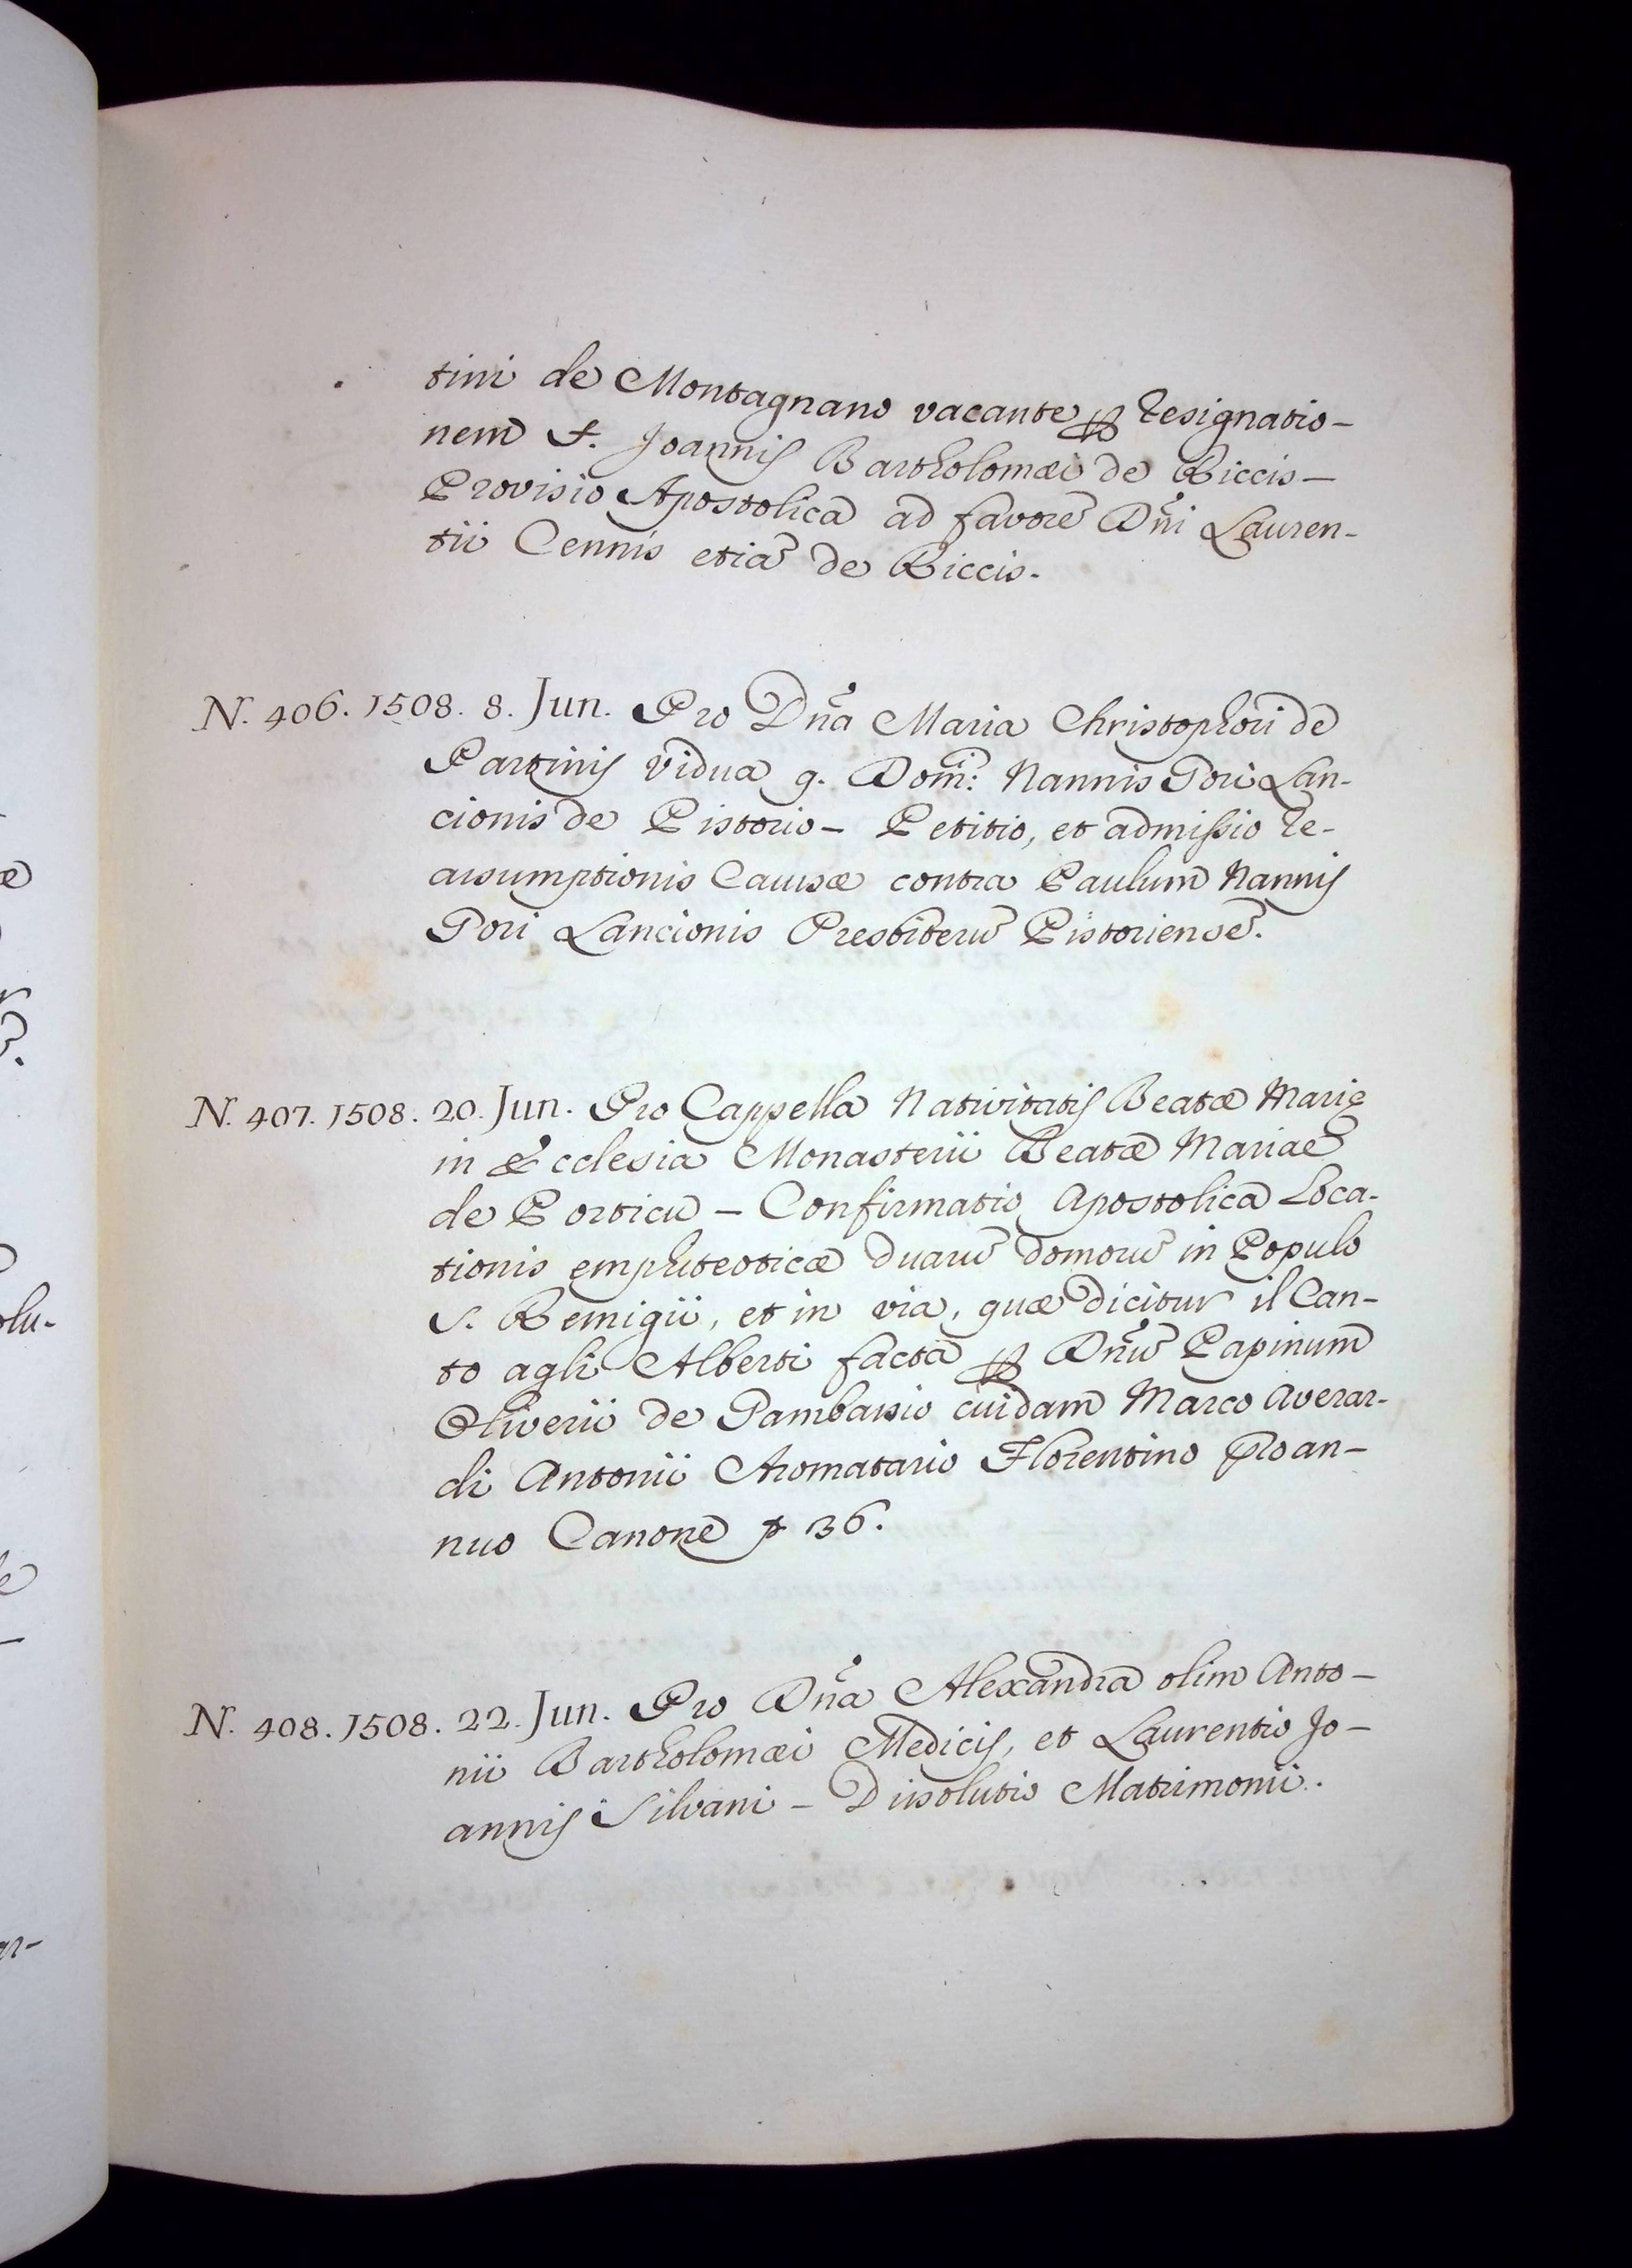 tini de Montagnano vacante ꝑ resignatio-
nem f. Joannis Bartholomæi de Riccis -
Provisio Apostolica ad favorẽ Dñi Lauren-
tii Cennis etiã de Riccis.
N. 406. 1508. 8. Jun. Pro Dña Maria Christophori de
Partinis vidua q. Dom̃: Nannis Gori Lan-
cionis de Pistorio - Petitio, et admissio re-
assumptionis Causæ contra Paulum Nannis
Gori Lancionis Presbiterũ Pistoriensẽ.
N. 407. 1508. 20. Jun. Pro Cappella Nativitatis Beatæ Marię
in Ecclesia Monasterii Beatæ Mariae
de Porticu - Confirmatio Apostolica Loca-
tionis emphiteoticæ duarũ domorũ in Populo
S. Remigii, et in via, quæ dicitur il Can-
to agli Alberti facta ꝑ Dñũ Papinum
Oliverii de Gambassio cuidam Marco Averar-
di Antonii Aromatario Florentino pro an-
nuo Canone 36.
N. 408. 1508. 22. Jun. Pro Dña Alexandra olim Anto-
nii Bartholomæi Medicis, et Laurentio Jo-
annis Silvani - Dissolutio Matrimonii.